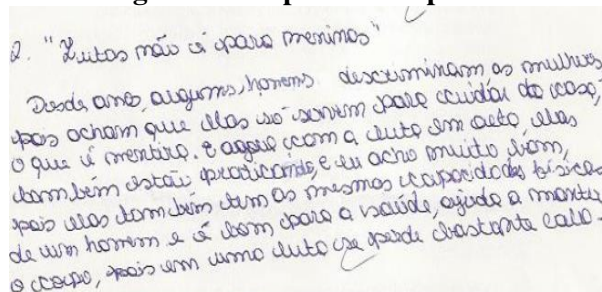 2. "Lutas não é para meninas"
Desde anos, augums, homens discriminam as mulheres
pois acham que elas só servem para cuidar da casa,
o que é mentira. E agora com a luta em auta, elas
também estão praticando, e eu acho muito bom,
pois elas também tem as mesmas capacidades físicas
de um homem e é bom para a saúde, ajuda a manter
o corpo, pois em uma luta se perde bastante calo-